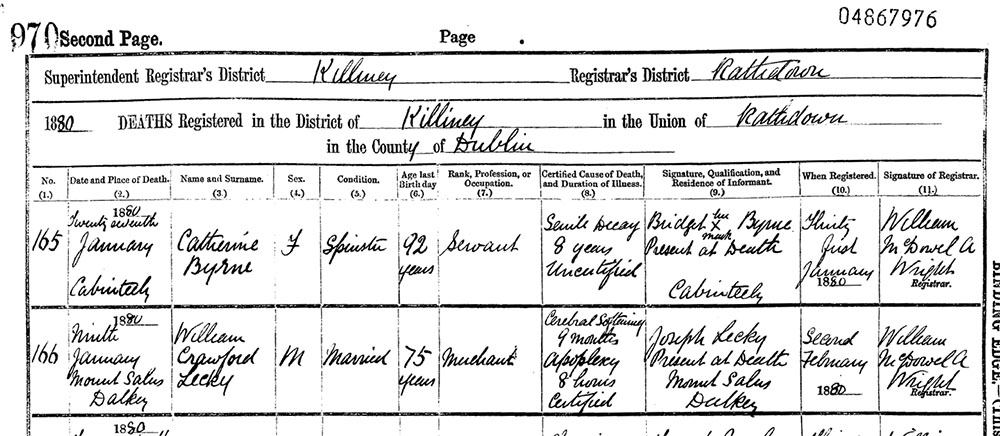 04867976
970 Second Page.
Page .
Superintendent Registrar's District Killiney Registrar's District Rathdown
1880 DEATHS Registered in the District of Killiney in the Union of Rathdown
in the County of Dublin
No. (1.)
Date and Place of Death. (2.)
Name and Surname. (3.)
Sex. (4.)
Condition. (5.)
Age last Birthday (6.)
Rank, Profession, or Occupation. (7.)
Certified Cause of Death, and Duration of Illness. (8.)
Signature, Qualification, and Residence of Informant. (9.)
When Registered. (10.)
Signature of Registrar. (11.)
165
1880
Twenty seventh
January
Cabinteely
Catherine
Byrne
F
Spinster
92
years
Servant
Senile Decay
8 years
Uncertified
Bridget her x mark Byrne
Present at Death
Cabinteely
Thirty
first
January
1880
William
McDowel A
Wright
Registrar.
166
1880
Ninth
January
Mount Salus
Dalkey
William
Crawford
Lecky
M
Married
75
years
Merchant
Cerebral Softening
9 months
Apoplexy
8 hours
Certified
Joseph Lecky
Present at Death
Mount Salus
Dalkey
Second
February
1880
William
McDowel A
Wright
Registrar.
1880